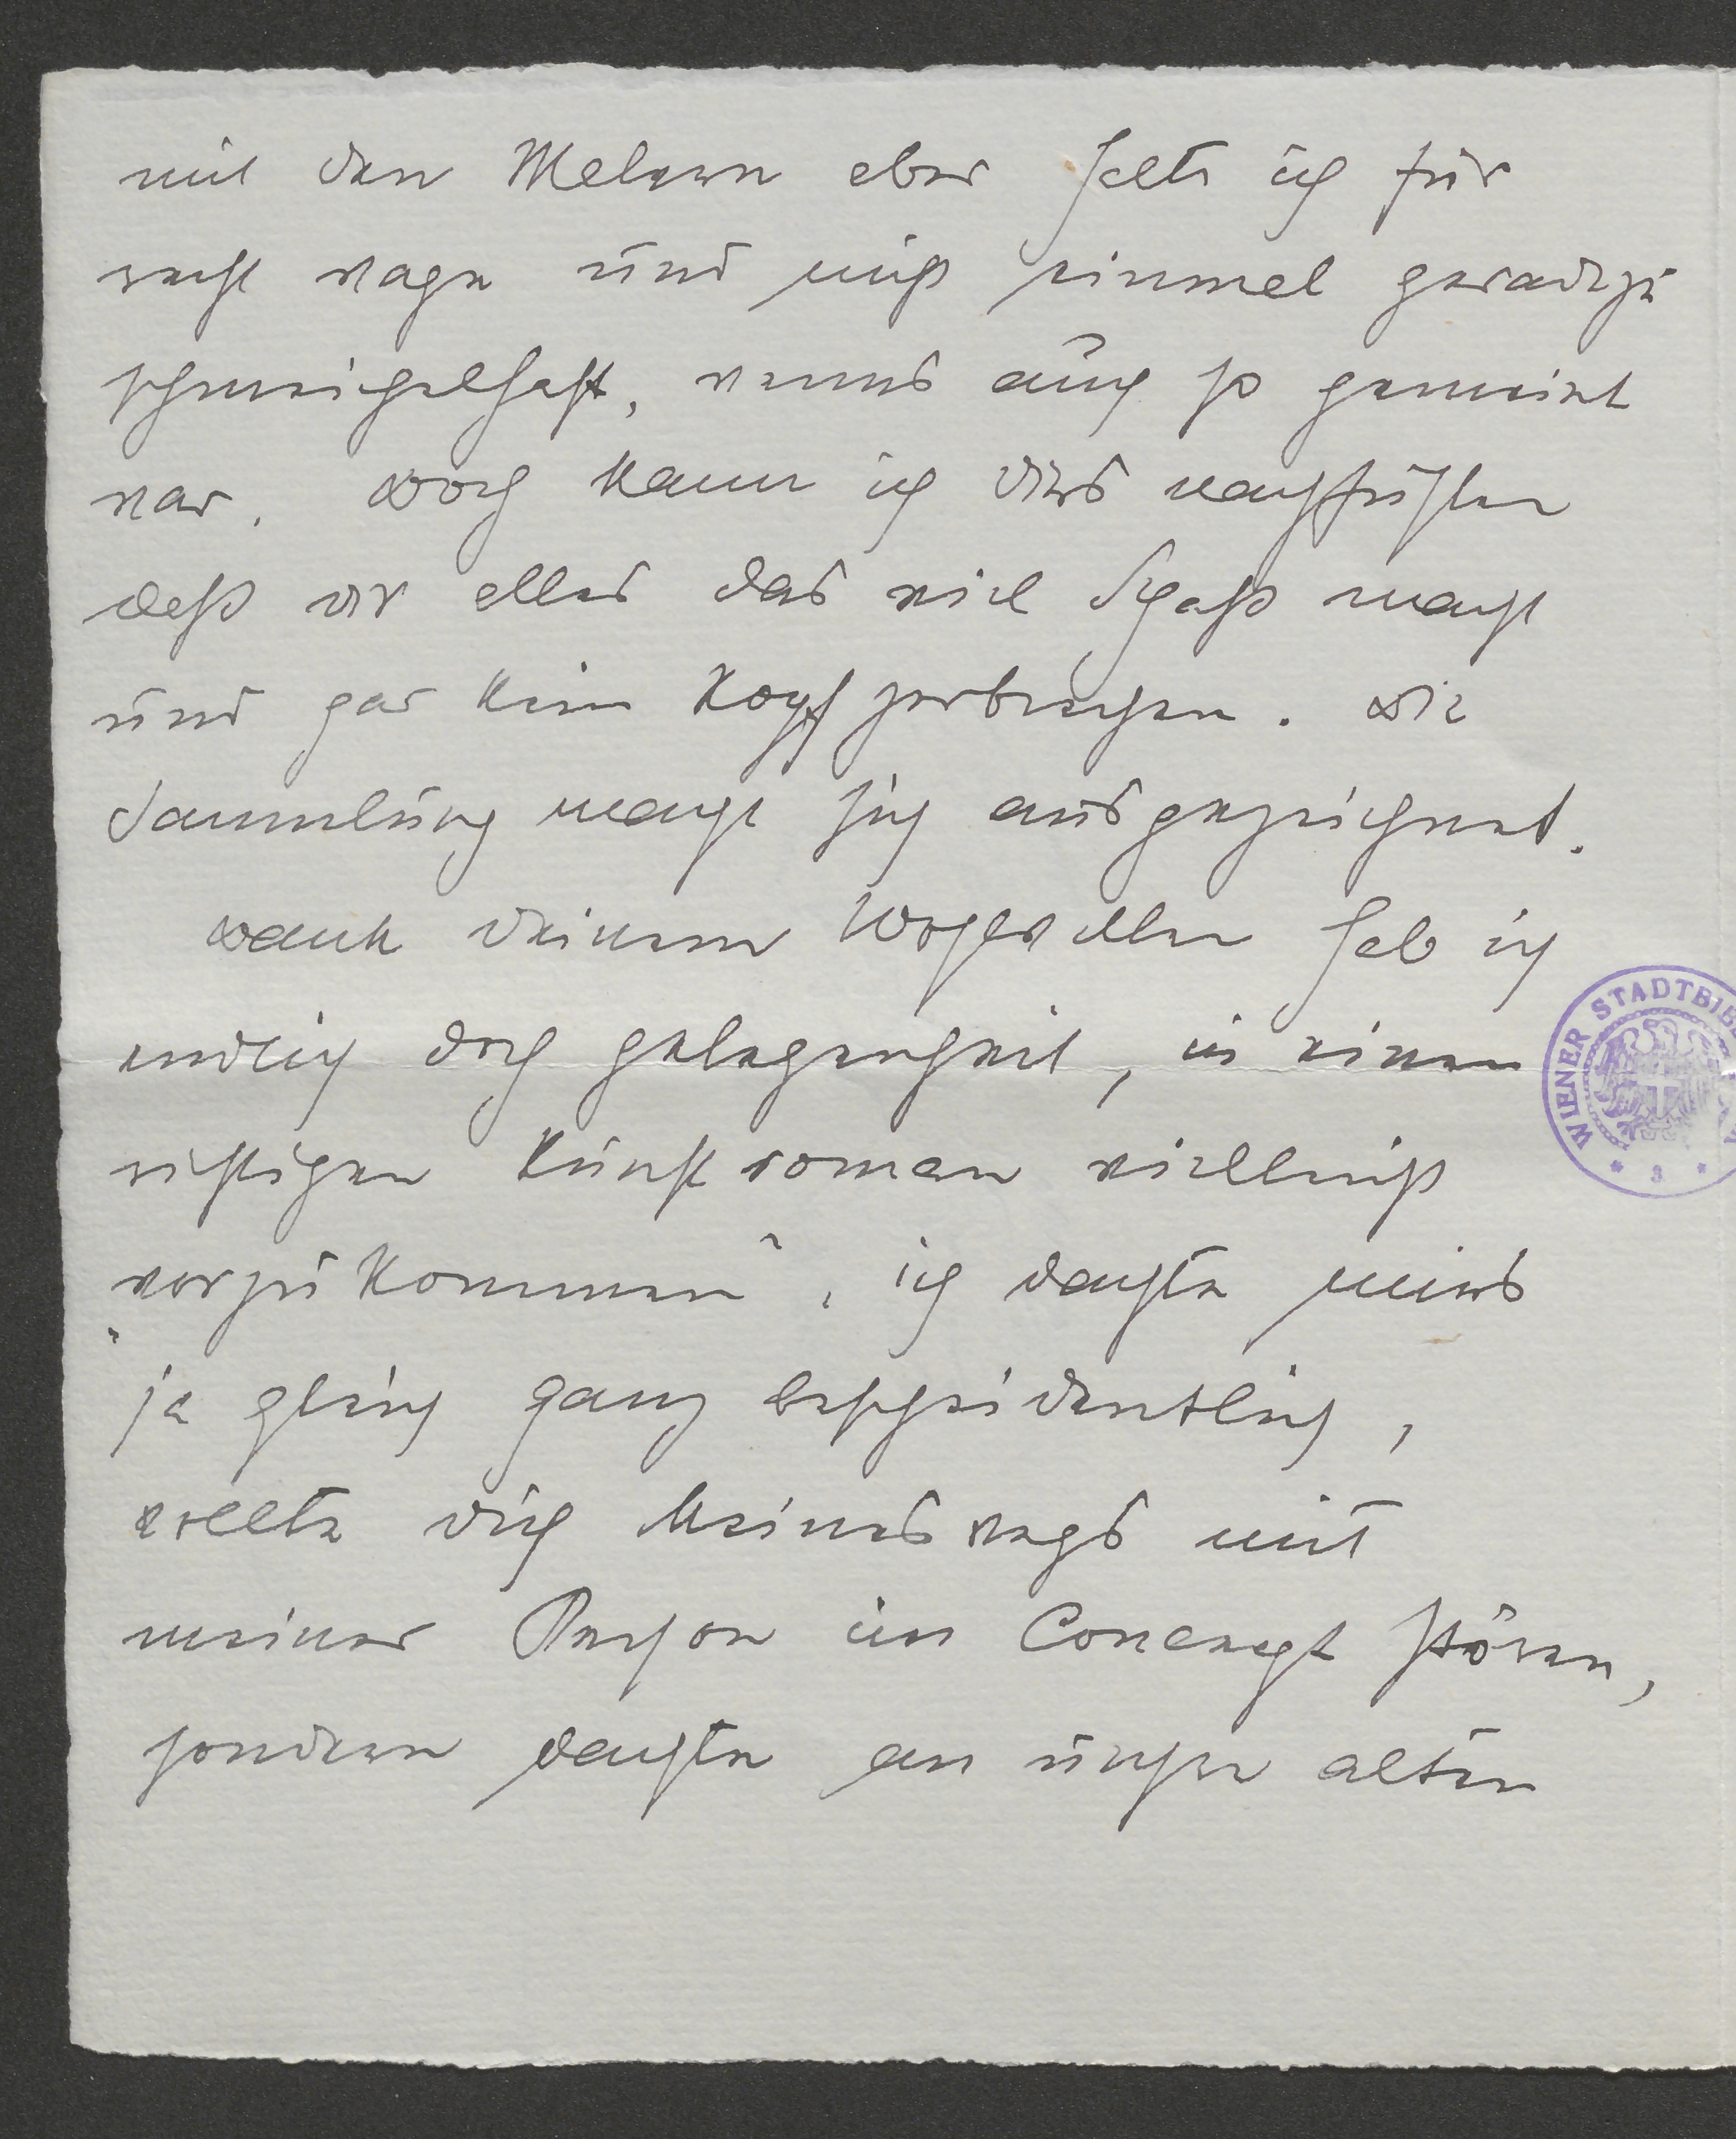 mit den Malern aber halte ich für
recht vage und nicht einmal geradezu
schmeichelhaft, wenns auch so gemeint
war. Doch kann ich dirs nachfühlen
daß dir alles das viel Spaß macht
und gar kein Kopfzerbrechen. Die
Sammlung macht sich ausgezeichnet.
Dank deinem Wohlwollen hab ich
endlich doch gelegenheit, in einem
richtigen Kunstroman vielleicht
„vorzukommen“, ich dachte mirs
ja gleich ganz bescheidentlich,
wollte dich keineswegs mit
meiner Person im Concept stören,
sondern dachte an unsern alten
WIENER STADTBIB
3